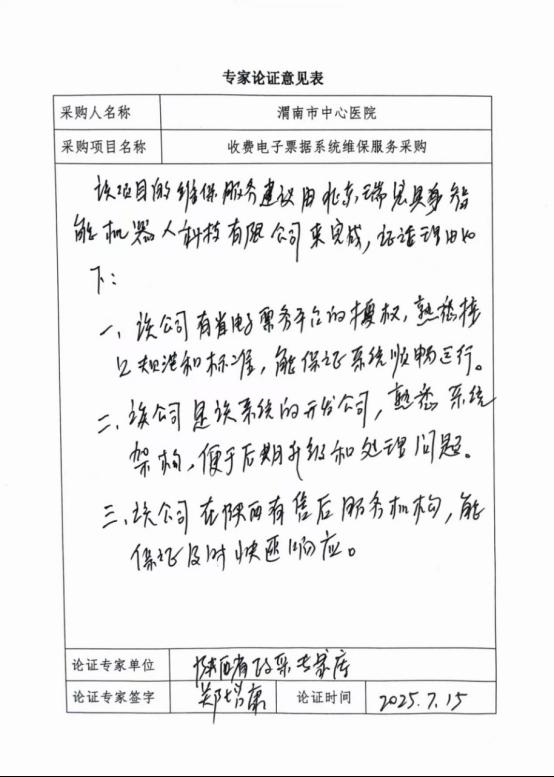 专家论证意见表
采购人名称 渭南市中心医院
采购项目名称 收费电子票据系统维保服务采购
该项目的维保服务建议由北京瑞宏具身智
能机器人科技有限公司来完成，论证理由如
下：
一、该公司有省电子票务平台的授权，熟悉接
口规范和标准，能保证系统顺畅运行。
二、该公司是该系统的开发公司，熟悉系统
架构，便于后期升级和处理问题。
三、该公司在陕西有售后服务机构，能
保证及时快速响应。
论证专家单位 陕西省政采专家库
论证专家签字 郑 康 论证时间 2025.7.15